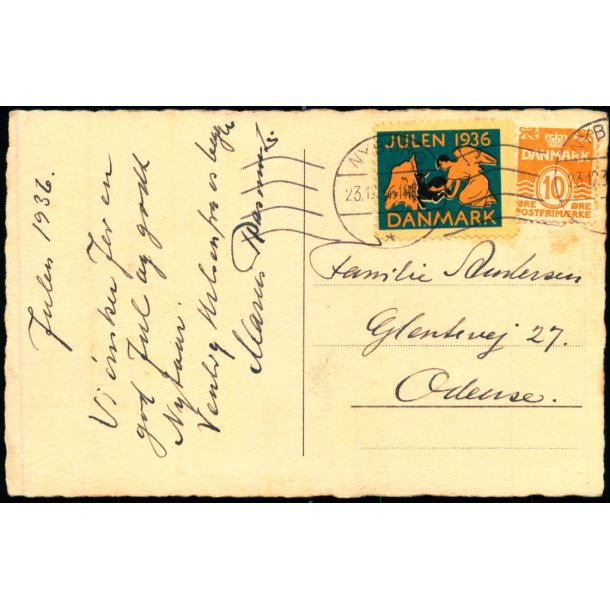 Julen 1936.
Vi ønsker Jer en
god Jul og godt
Nytaar.
Venlig Hilsen fra os begge
Marius Rasmussen.
JULEN 1936
DANMARK
DANMARK
10
ØRE ØRE
POSTFRIMÆRKE
23.12.
Familie Andersen
Glentevej 27.
Odense.